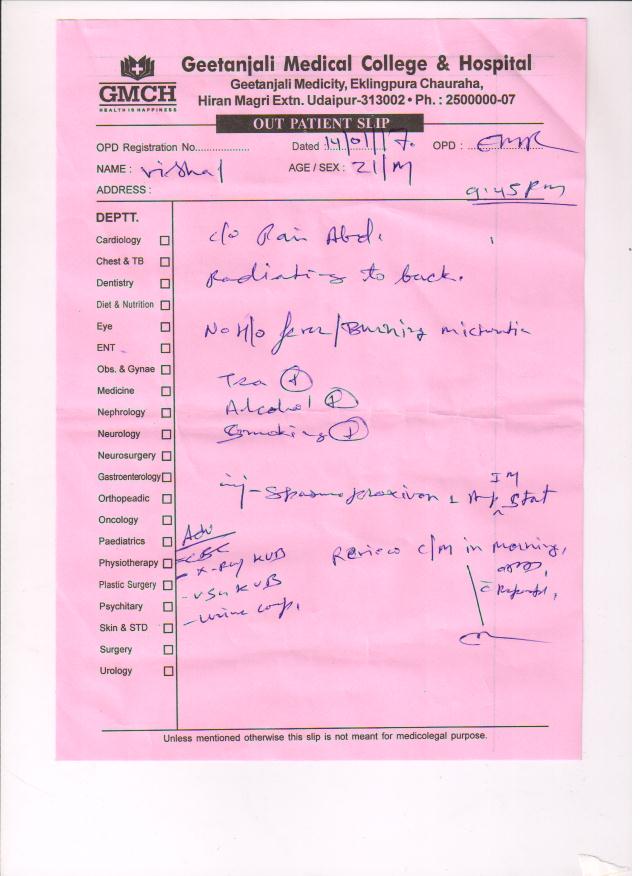 Geetanjali Medical College & Hospital
Geetanjali Medicity, Eklingpura Chauraha,
Hiran Magri Extn. Udaipur-313002 • Ph. : 2500000-07
GMCH
HEALTH IS HAPPINESS
OUT PATIENT SLIP
OPD Registration No.................. Dated : 14/01/17. OPD : EMR
NAME : Vishal AGE / SEX : 21/M
ADDRESS : 9:45 Pm
DEPTT.
Cardiology
Chest & TB
Dentistry
Diet & Nutrition
Eye
ENT
Obs. & Gynae
Medicine
Nephrology
Neurology
Neurosurgery
Gastroenterology
Orthopeadic
Oncology
Paediatrics
Physiotherapy
Plastic Surgery
Psychitary
Skin & STD
Surgery
Urology
c/o Pain Abd.
Radiating to back.
No H/o fever/Burning micturitin
Tea +
Alcohol +
Smoking +
inj - Spasmoproxivon 1 Amp IM Stat
Review c/m in morning,
Adv
- CBC
- X-Ray KUB
- USG KUB
- Urine comp.
Unless mentioned otherwise this slip is not meant for medicolegal purpose.